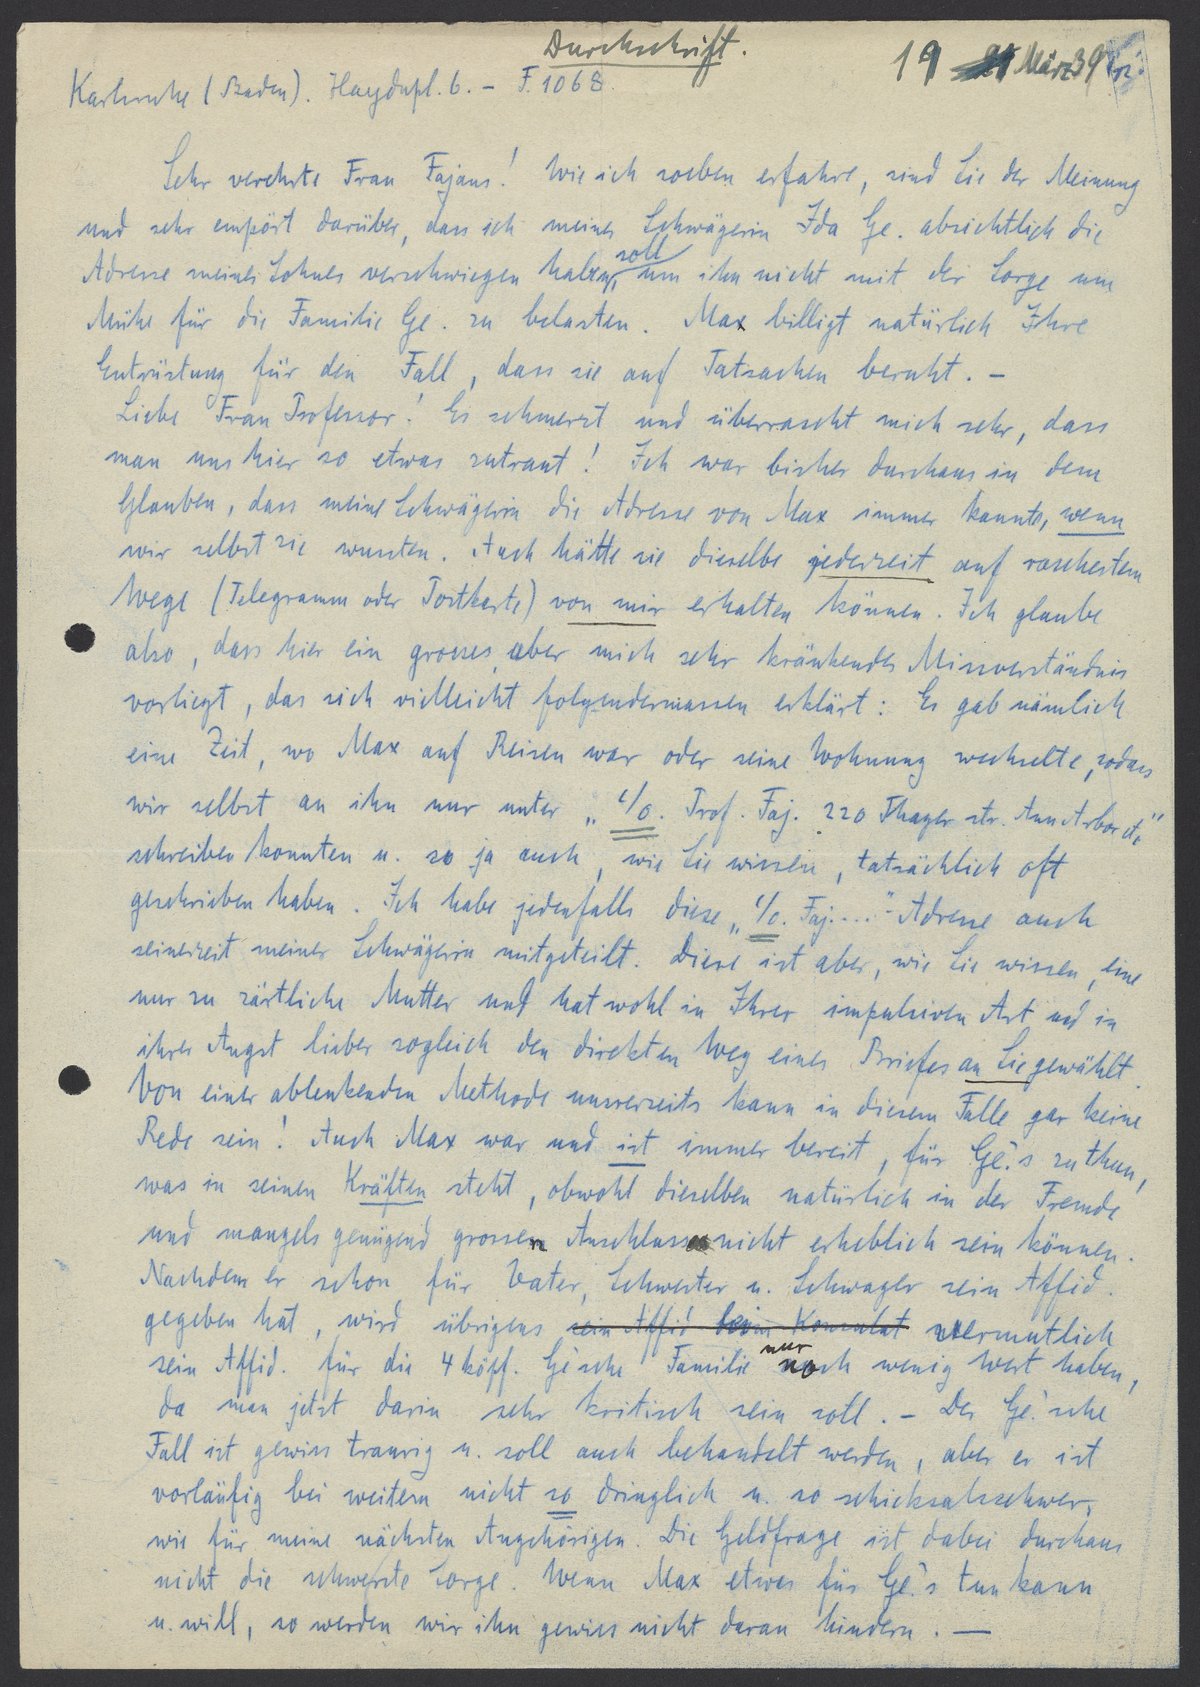 Durchschrift.
19 März 39
Karlsruhe (Baden). Haydnpl. 6. – F. 1068
Sehr verehrte Frau Fajans! Wie ich soeben erfahre, sind Sie der Meinung
und sehr empört darüber, dass ich meiner Schwägerin Ida Ge. absichtlich die
Adresse meines Sohnes verschwiegen haben soll, um ihn nicht mit der Sorge um
Mühe für die Familie Ge. zu belasten. Max billigt natürlich Ihre
Entrüstung für den Fall, dass sie auf Tatsachen beruht. –
Liebe Frau Professor! Es schmerzt und überrascht mich sehr, dass
man uns hier so etwas zutraut! Ich war bisher durchaus in dem
Glauben, dass meine Schwägerin die Adresse von Max immer kannte, wenn
wir selbst sie wussten. Auch hätte sie dieselbe jederzeit auf raschestem
Wege (Telegramm oder Postkarte) von mir erhalten können. Ich glaube
also, dass hier ein grosses, aber mich sehr kränkendes Missverständnis
vorliegt, das sich vielleicht folgendermassen erklärt: Es gab nämlich
eine Zeit, wo Max auf Reisen war oder seine Wohnung wechselte, sodass
wir selbst an ihn nur unter „c/o. Prof. Faj. 220 Thayer str. Ann Arbor etc"
schreiben konnten u. so ja auch, wie Sie wissen, tatsächlich oft
geschrieben haben. Ich habe jedenfalls diese „c/o. Faj....."-Adresse auch
seinerzeit meiner Schwägerin mitgeteilt. Diese ist aber, wie Sie wissen, eine
nur zu zärtliche Mutter und hat wohl in Ihrer impulsiven Art und in
ihrer Angst lieber sogleich den direkten Weg eines Briefes an Sie gewählt.
Von einer ablenkenden Methode unsrerseits kann in diesem Falle gar keine
Rede sein! Auch Max war und ist immer bereit, für Ge.'s zu thun,
was in seinen Kräften steht, obwohl dieselben natürlich in der Fremde
und mangels genügend grossen Anschlusses nicht erheblich sein können.
Nachdem er schon für Vater, Schwester u. Schwager sein Affid.
gegeben hat, wird übrigens sein Affid beim Konsulat vermutlich
sein Affid. für die 4 köpf. Ge'sche Familie nur noch wenig Wert haben,
da man jetzt darin sehr kritisch sein soll. – Der Ge.'sche
Fall ist gewiss traurig u. soll auch behandelt werden, aber er ist
vorläufig bei weitem nicht so dringlich u. so schicksalsschwer,
wie für meine nächsten Angehörigen. Die Geldfrage ist dabei durchaus
nicht die schwerste Sorge. Wenn Max etwas für Ge.'s tun kann
u. will, so werden wir ihn gewiss nicht daran hindern. —